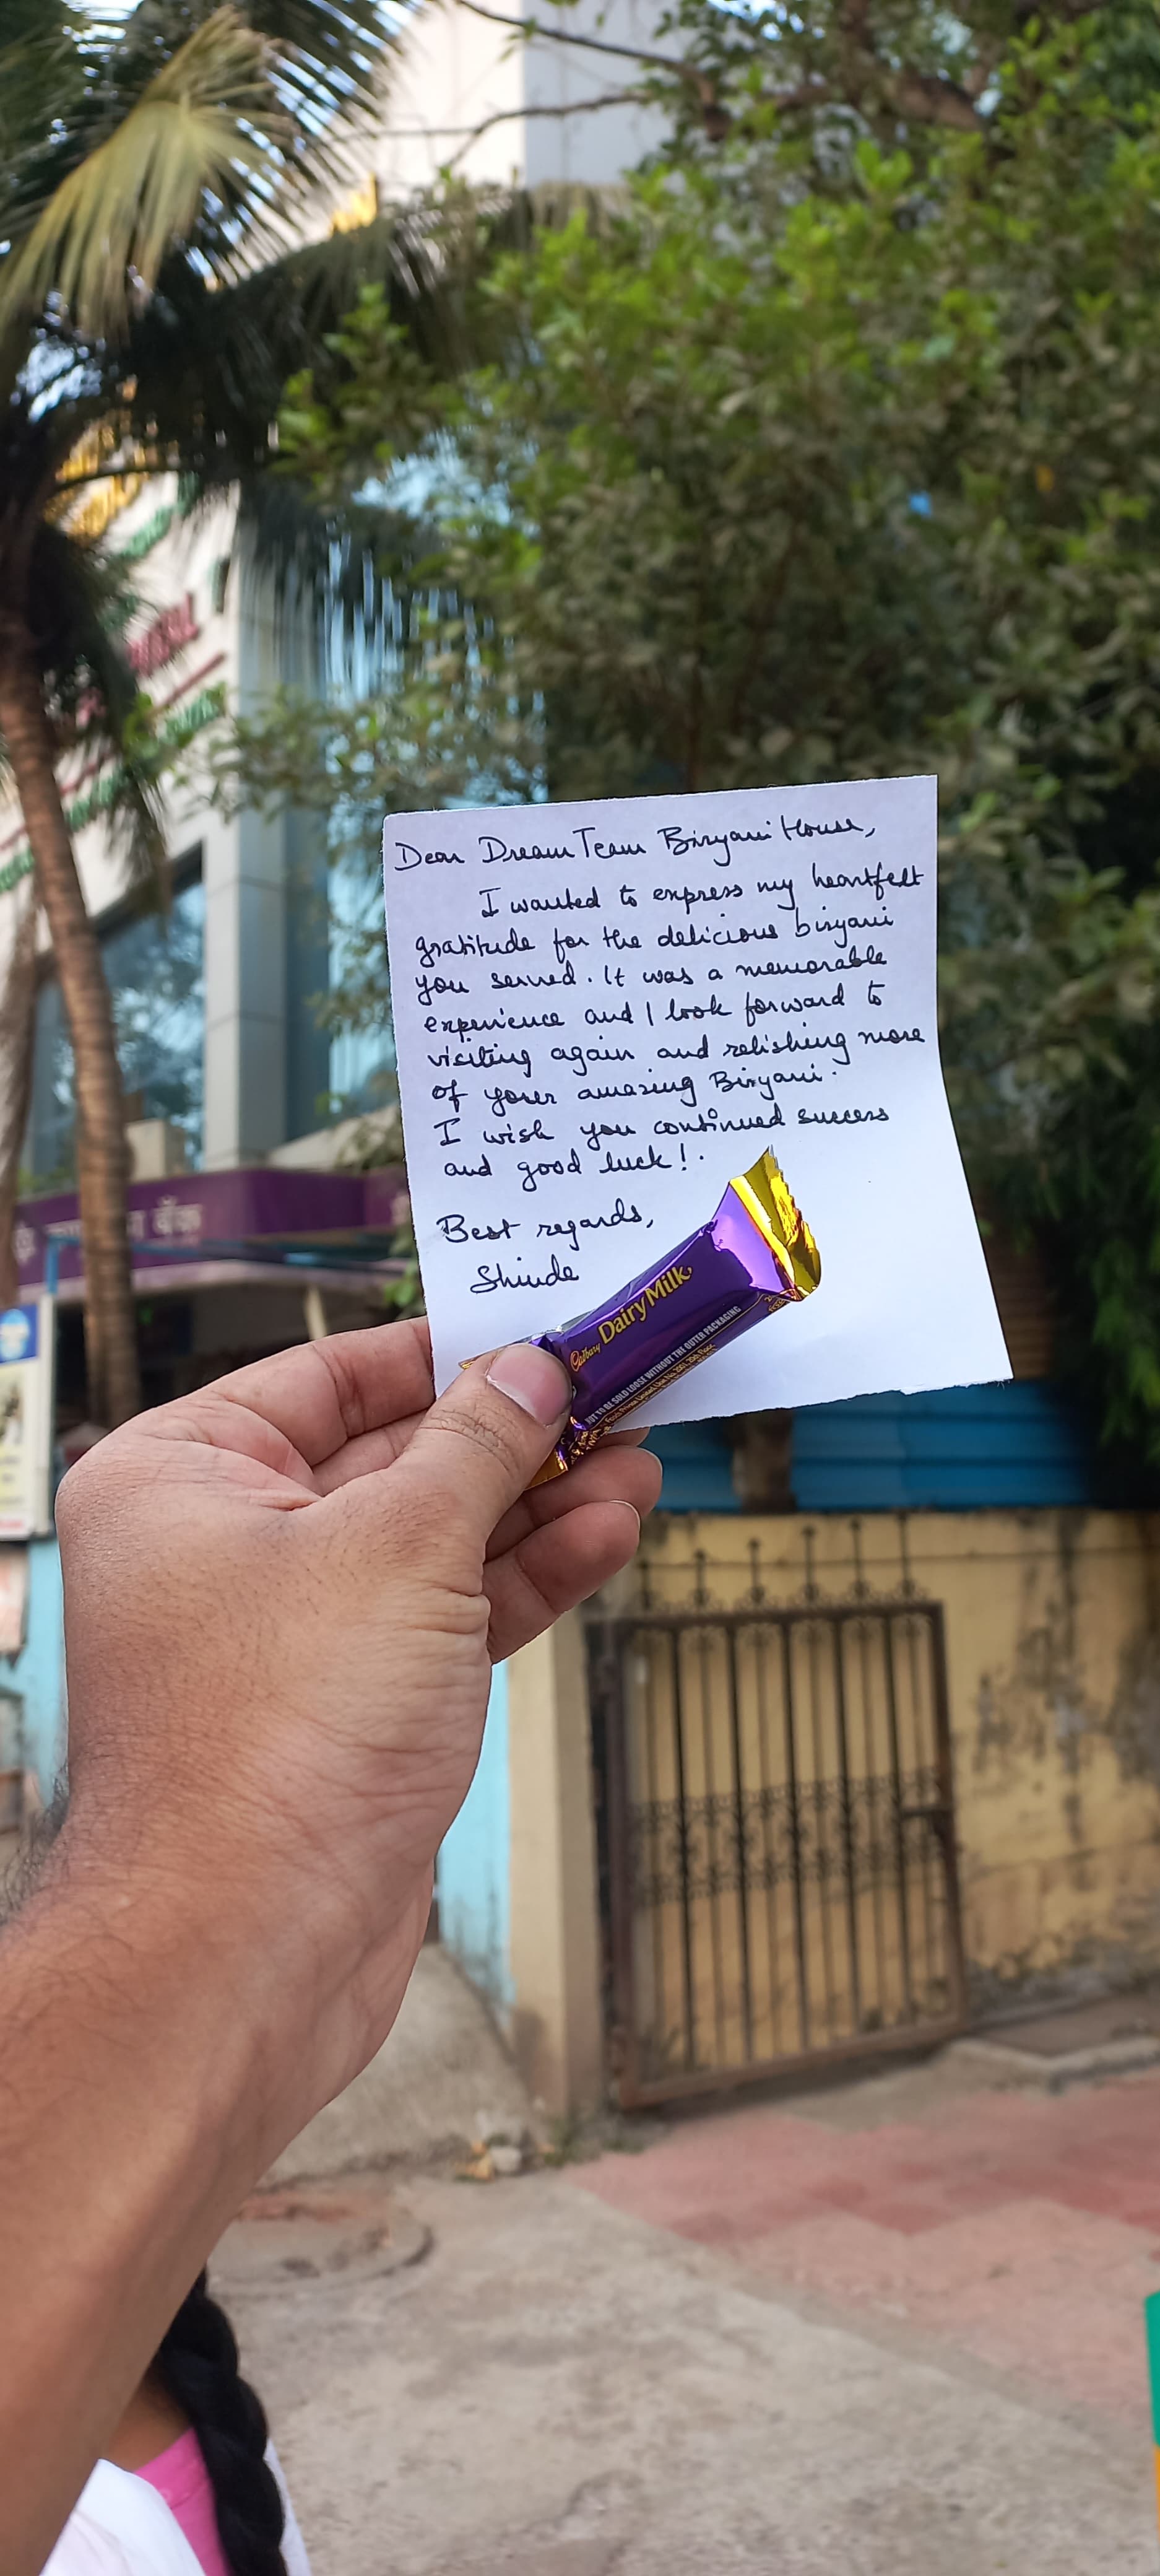 Dear Dream Team Biryani House,
I wanted to express my heartfelt
gratitude for the delicious biryani
you served. It was a memorable
experience and I look forward to
visiting again and relishing more
of your amazing Biryani.
I wish you continued success
and good luck!.
Best regards,
Shinde
Cadbury Dairy Milk
NOT TO BE SOLD LOOSE WITHOUT THE OUTER PACKAGING
बँक